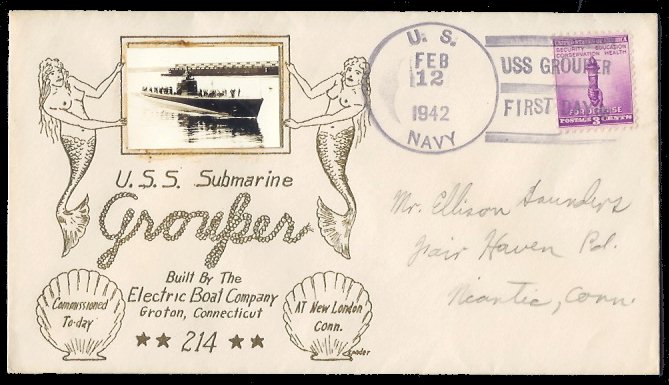 U. S.
FEB
12
1942
NAVY
USS GROUPER
FIRST DAY
UNITED STATES OF AMERICA
SECURITY EDUCATION
CONSERVATION HEALTH
FOR DEFENSE
POSTAGE 3 CENTS
U.S.S. Submarine
Grouper
Built By The
Electric Boat Company
Groton, Connecticut
★★ 214 ★★
Commissioned
To-day
AT New London
Conn.
Mr. Ellison Saunders
Fair Haven Rd.
Niantic, Conn.